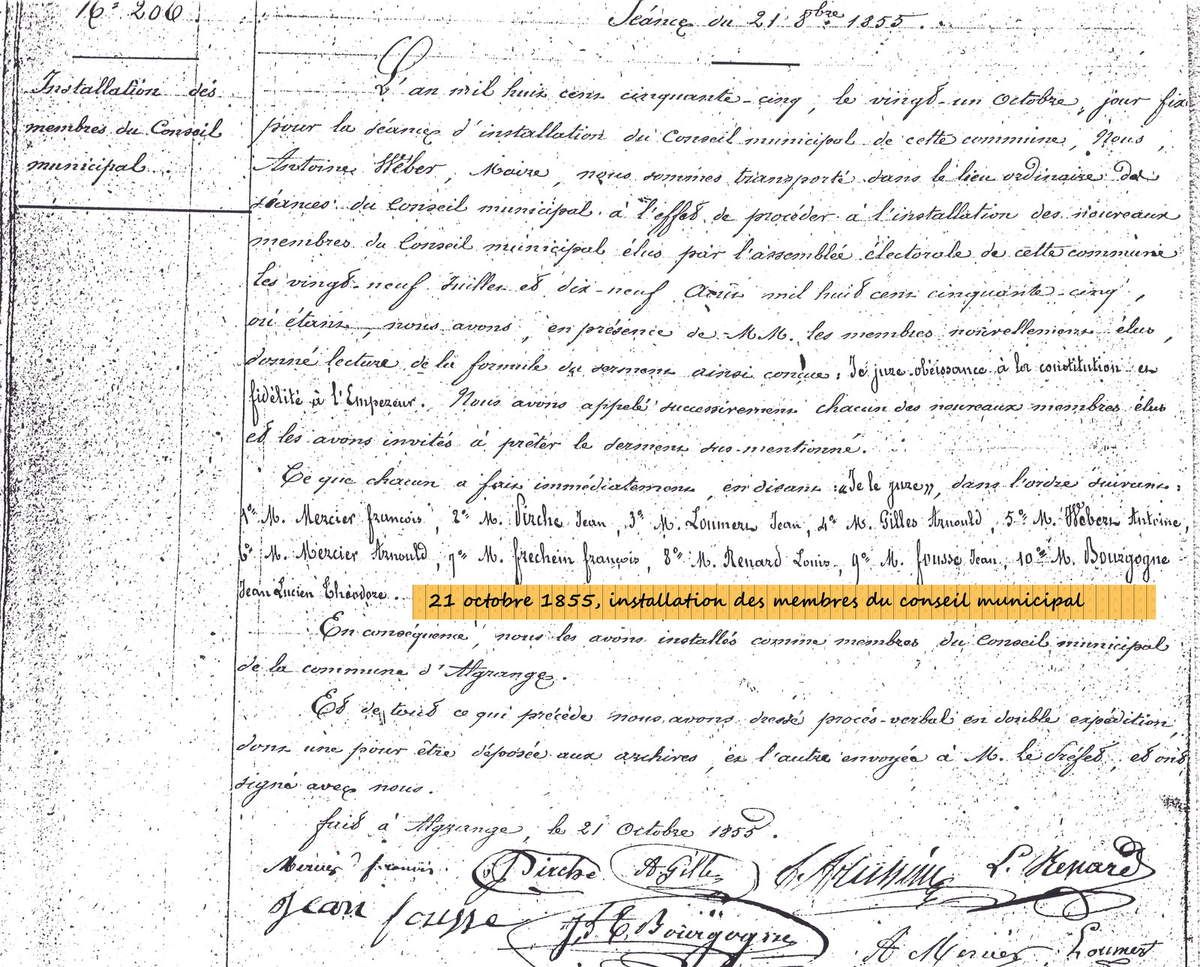 N° 206
Séance du 21 8bre 1855.
Installation des
membres du Conseil
municipal.
L'an mil huit cent cinquante-cinq, le vingt-un Octobre, jour fix
pour la séance d'installation du Conseil municipal de cette commune, Nous,
Antoine Wéber, Maire, nous sommes transporté dans le lieu ordinaire des
séances du Conseil municipal à l'effet de procéder à l'installation des nouveaux
membres du Conseil municipal élus par l'assemblée électorale de cette commune
les vingt-neuf Juillet et dix-neuf Août mil huit cent cinquante-cinq,
où étant, nous avons, en présence de MM. les membres nouvellement élus,
donné lecture de la formule du serment ainsi conçue : Je jure obéissance à la constitution et
fidélité à l'Empereur. Nous avons appelé successivement chacun des nouveaux membres élus
et les avons invités à prêter le serment sus-mentionné.
Ce que chacun a fait immédiatement, en disant : «Je le jure», dans l'ordre suivant :
1° M. Mercier françois, 2° M. Pirche Jean, 3° M. Loumert Jean, 4° M. Gilles Arnould, 5° M. Wéber Antoine,
6° M. Mercier Arnould, 7° M. frechein françois, 8° M. Renard Louis, 9° M. fousse Jean, 10° M. Bourgogne
Jean Lucien Théodore.
21 octobre 1855, installation des membres du conseil municipal
En conséquence, nous les avons installés comme membres du Conseil municipal
de la commune d'Algrange.
Et de tout ce qui précède nous avons dressé procès-verbal en double expédition,
dont une pour être déposée aux archives, et l'autre envoyée à M. le Préfet, et ont
signé avec nous.
fait à Algrange, le 21 Octobre 1855.
Mercier françois. Pirche A Gille L. Renard
Jean fousse J L T Bourgogne A Mercier Loumert